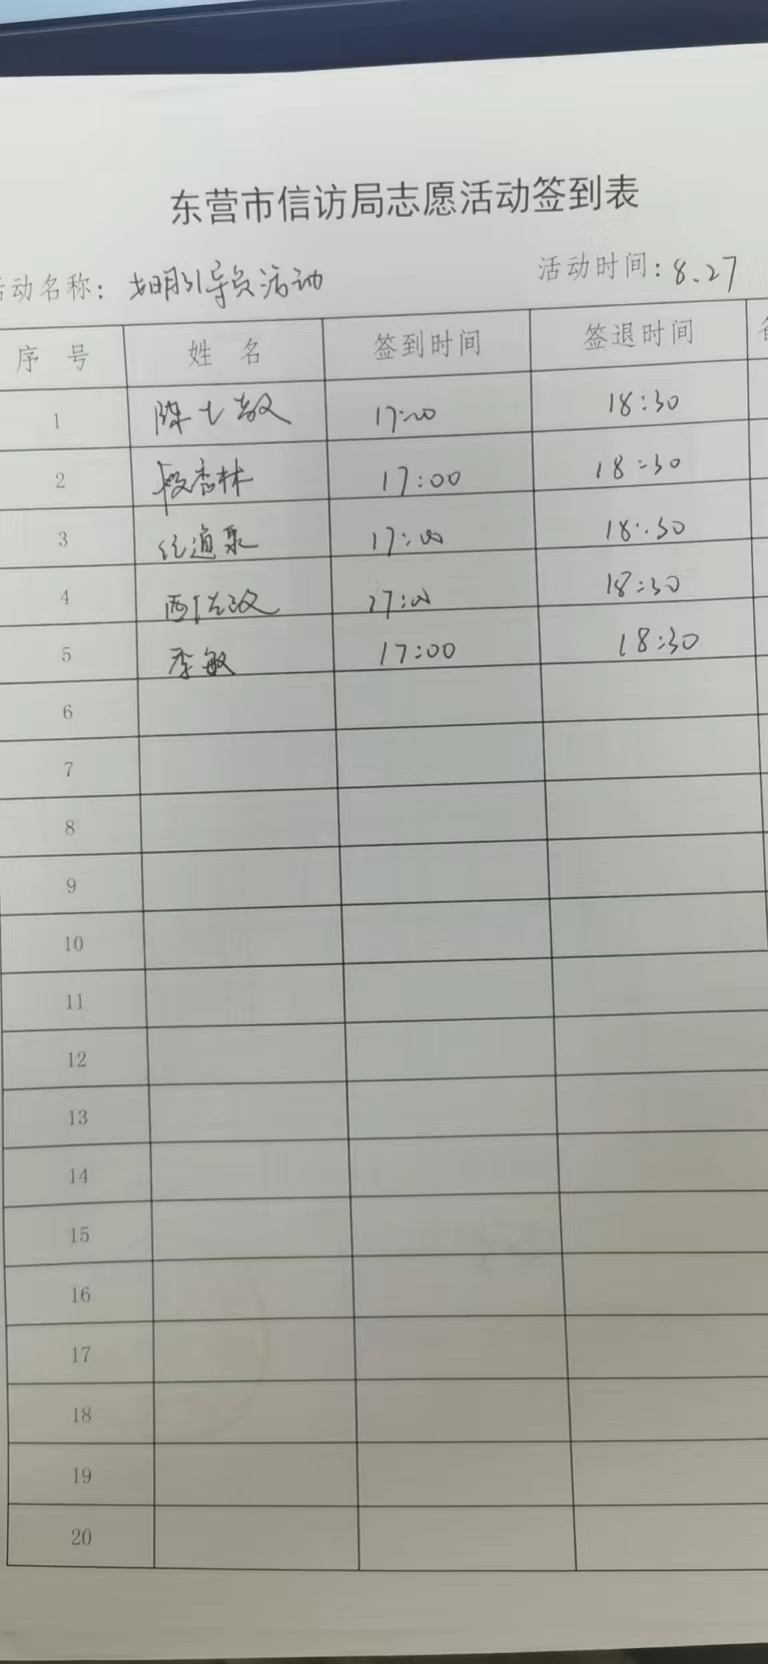 东营市信访局志愿活动签到表
活动名称：文明引导员活动 活动时间：8.27
序 号 姓 名 签到时间 签退时间
1 陈 17:00 18:30
2 段杏林 17:00 18:30
3 任道聚 17:00 18:30
4 17:00 18:30
5 李敏 17:00 18:30
6
7
8
9
10
11
12
13
14
15
16
17
18
19
20